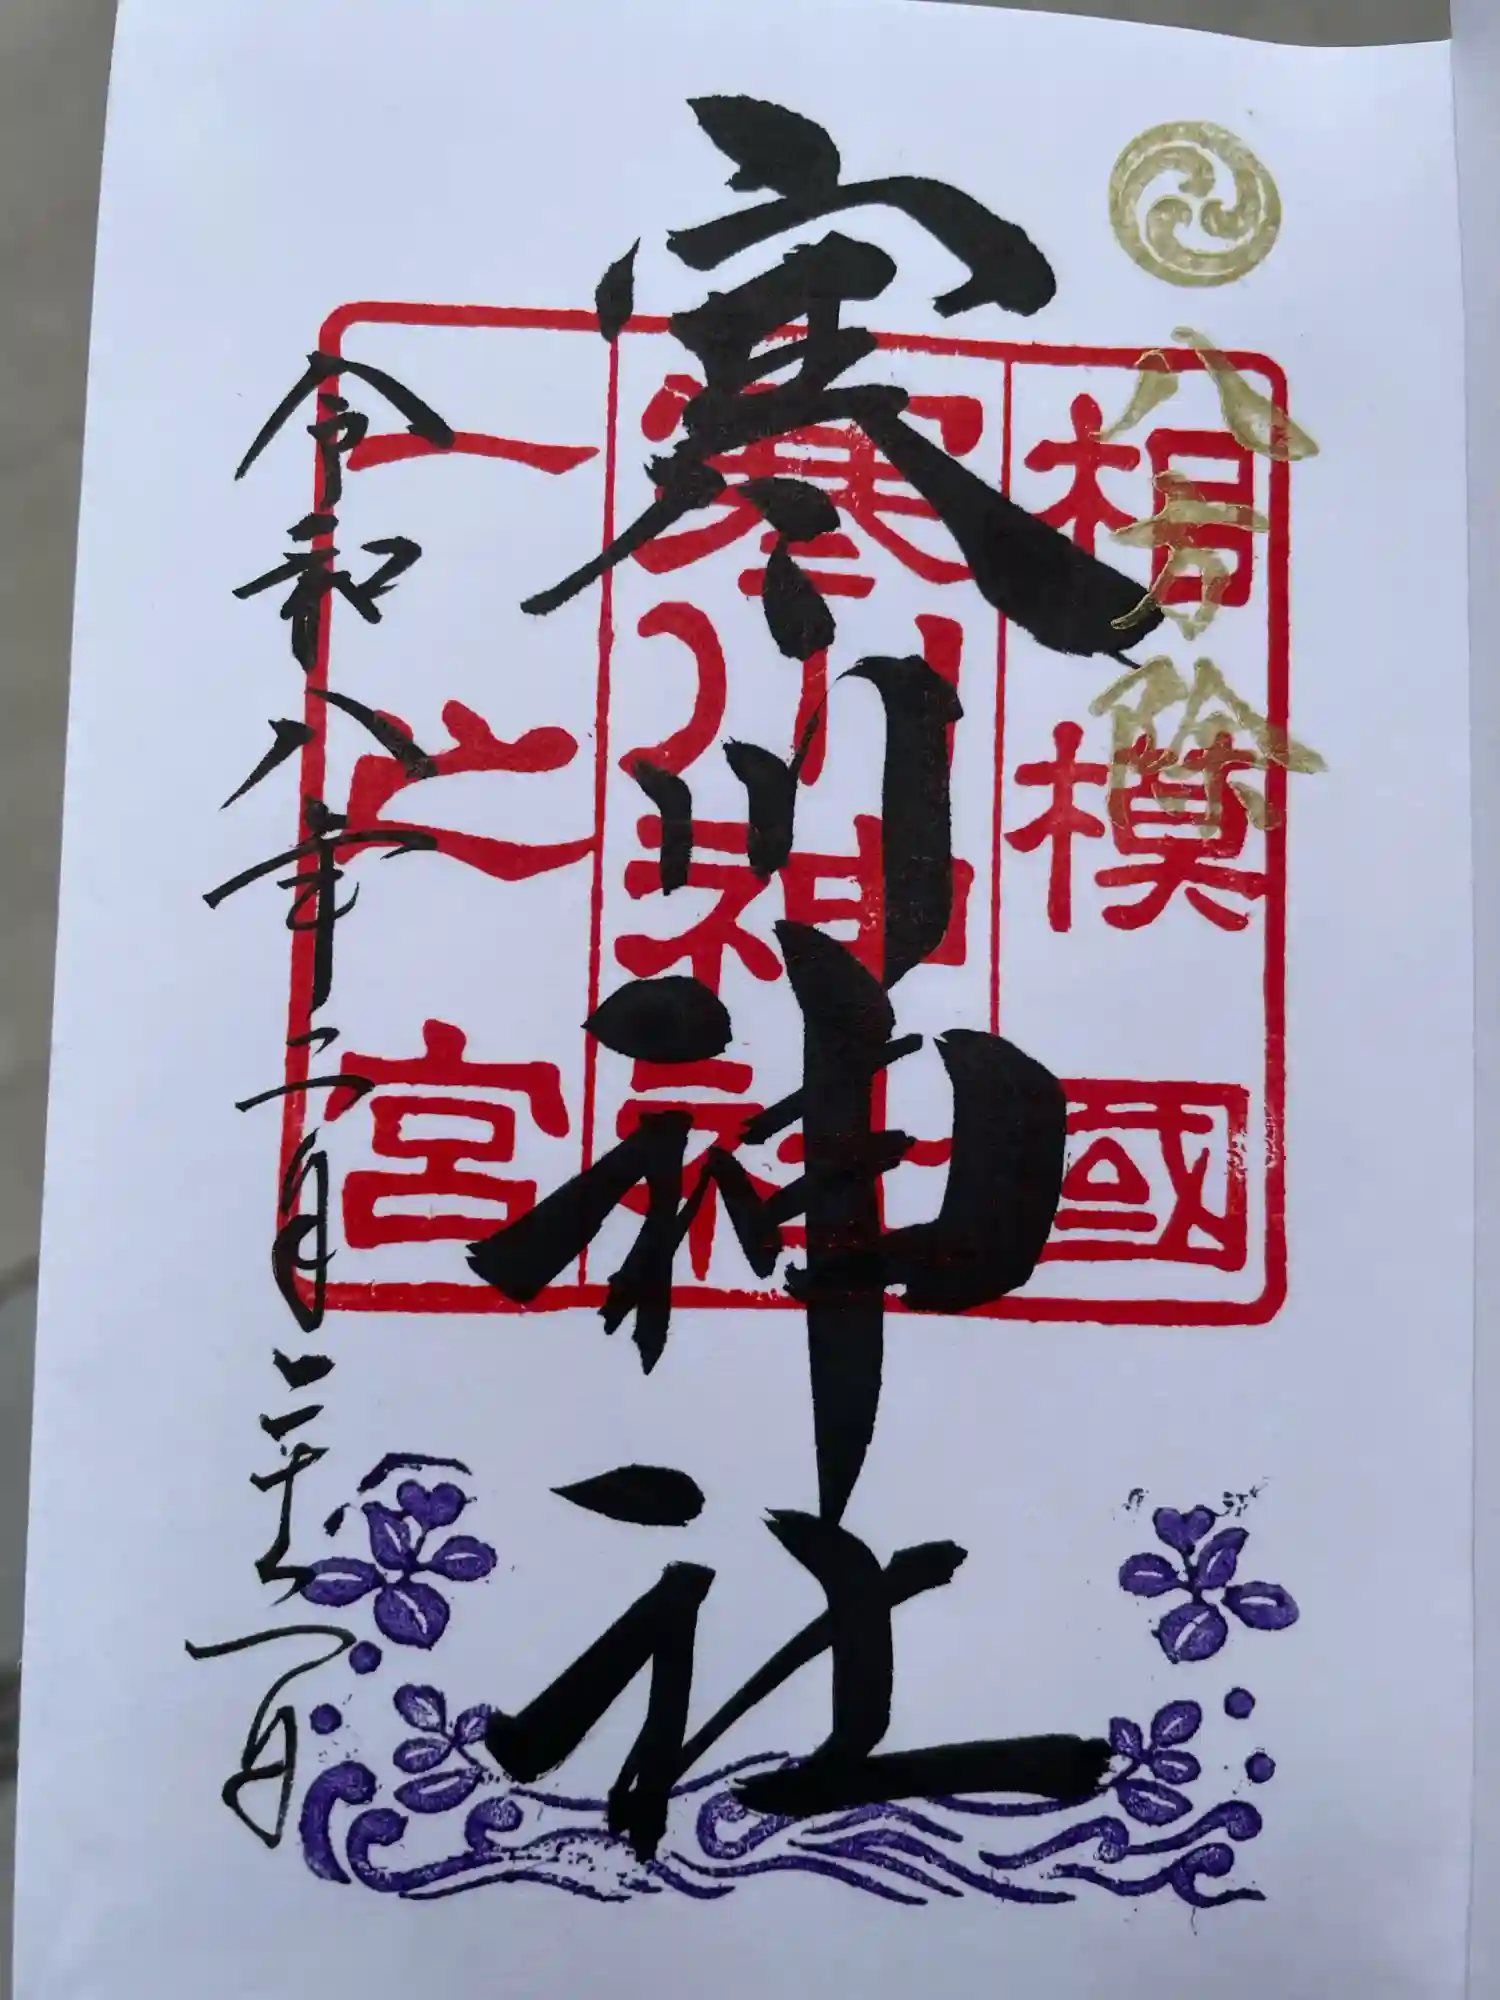 八方除
相模國
寒川神社
寒川神社
一之宮
令和八年二月二十 日